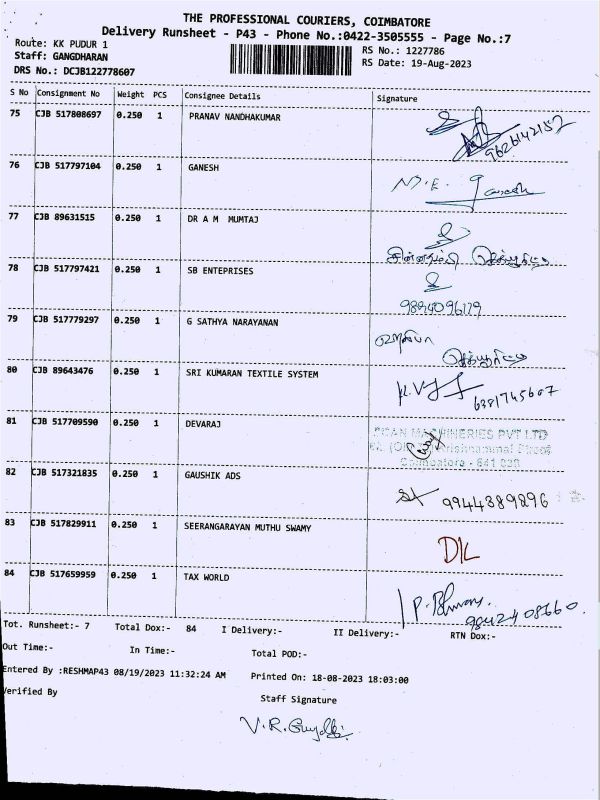 THE PROFESSIONAL COURIERS, COIMBATORE
Delivery Runsheet - P43 - Phone No.:0422-3505555 - Page No.:7
Route: KK PUDUR 1
RS No.: 1227786
Staff: GANGDHARAN
RS Date: 19-Aug-2023
DRS No.: DCJB122778607
S No Consignment No Weight PCS Consignee Details Signature
75 CJB 517808697 0.250 1 PRANAV NANDHAKUMAR
9626142157
76 CJB 517797104 0.250 1 GANESH
N.E. Ganesh
77 CJB 89631515 0.250 1 DR A M MUMTAJ
78 CJB 517797421 0.250 1 SB ENTEPRISES
9894096179
79 CJB 517779297 0.250 1 G SATHYA NARAYANAN
80 CJB 89643476 0.250 1 SRI KUMARAN TEXTILE SYSTEM
6381745607
81 CJB 517709590 0.250 1 DEVARAJ
MACHINERIES PVT LTD
Krishnammal Street
Coimbatore - 641
82 CJB 517321835 0.250 1 GAUSHIK ADS
9944389896
83 CJB 517829911 0.250 1 SEERANGARAYAN MUTHU SWAMY
DIL
84 CJB 517659959 0.250 1 TAX WORLD
9842408660
Tot. Runsheet:- 7 Total Dox:- 84 I Delivery:- II Delivery:- RTN Dox:-
Out Time:- In Time:- Total POD:-
Entered By :RESHMAP43 08/19/2023 11:32:24 AM Printed On: 18-08-2023 18:03:00
Verified By
Staff Signature